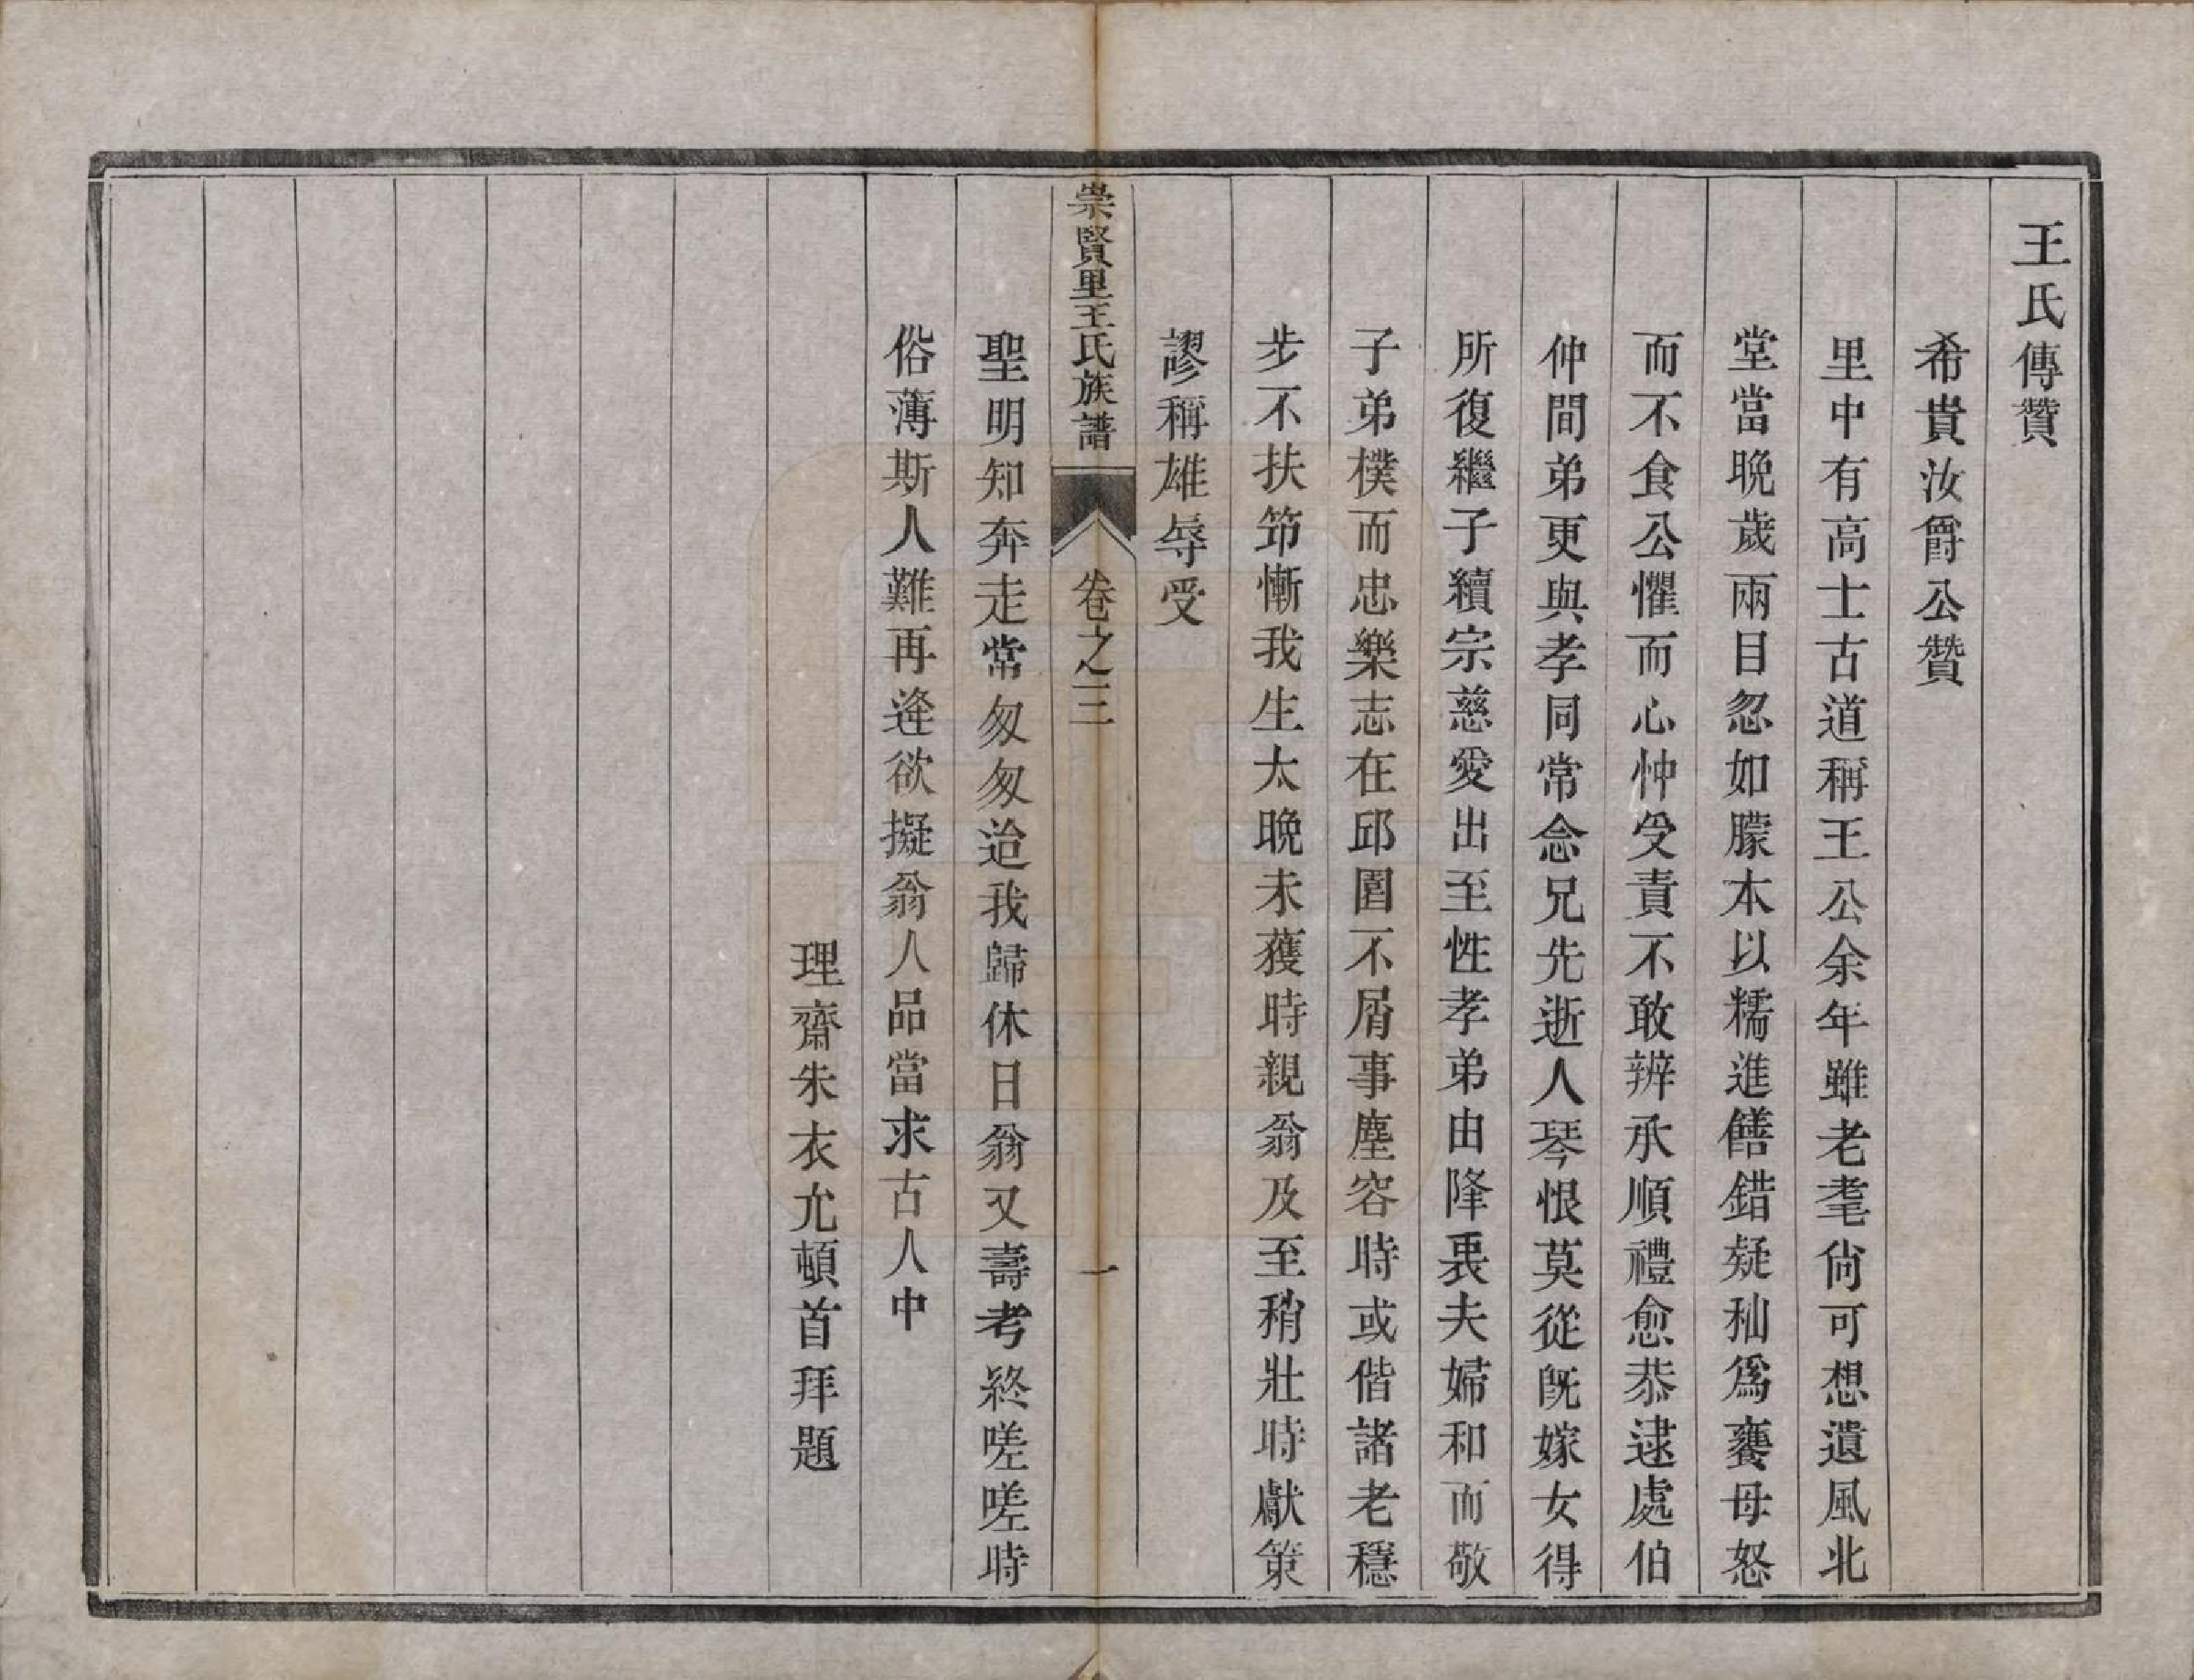 王氏傳贊
希貴汝爵公贊
里中有高士古道稱王公余年雖老耄尙可想遺風北
堂當晩歲兩目忽如朦本以糯進饍錯疑秈爲饔母怒
而不食公懼而心忡受責不敢辨承順禮愈恭逮處伯
仲間弟更與孝同常念兄先逝人琴恨莫從旣嫁女得
所復繼子續宗慈愛出至性孝弟由降衷夫婦和而敬
子弟樸而忠樂志在邱園不屑事塵容時或偕諸老穩
步不扶笻慚我生太晩未獲時親翁及至稍壯時獻策
謬稱雄辱受
崇賢里王氏族譜 卷之三 一
聖明知奔走常匆匆迨我歸休日翁又壽考終嗟嗟時
俗薄斯人難再逢欲擬翁人品當求古人中
理齋朱衣尤頓首拜題